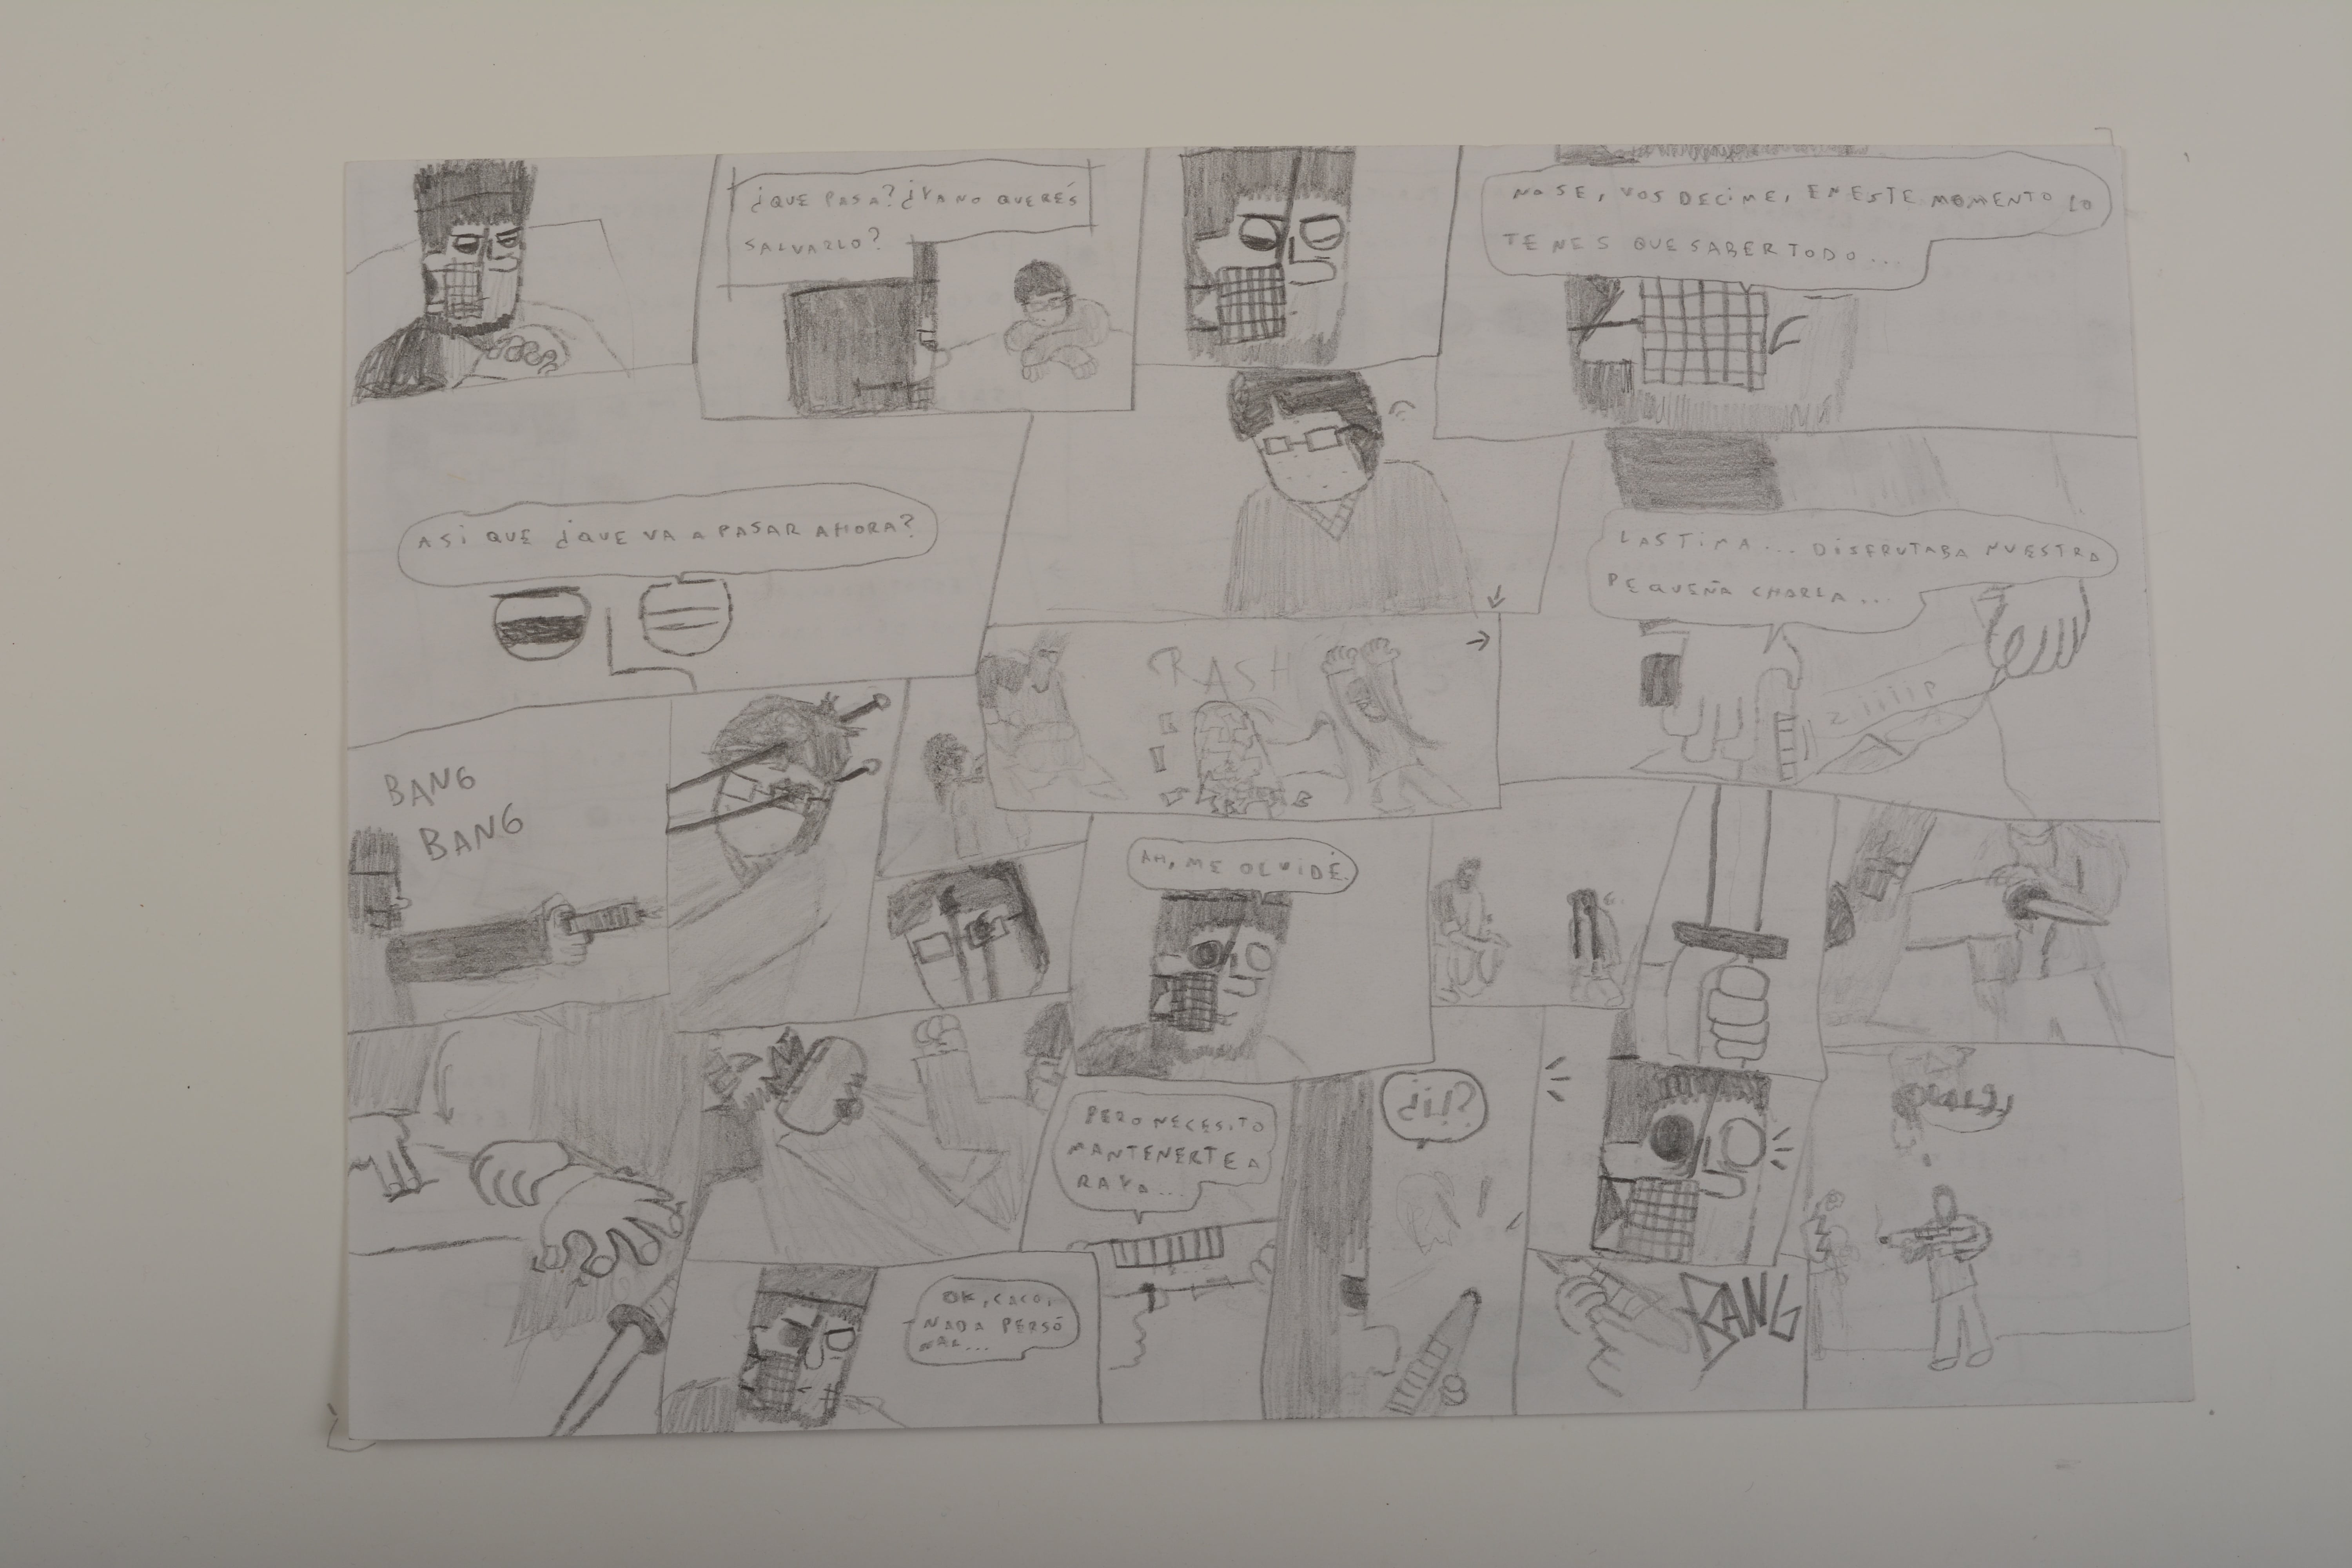 ¿QUE PASA? ¿YA NO QUERÉS
SALVARLO?
NO SE, VOS DECIME, EN ESTE MOMENTO LO
TENES QUE SABER TODO...
ASI QUE ¿QUE VA A PASAR AHORA?
LASTIMA... DISFRUTABA NUESTRA
PEQUEÑA CHARLA...
CRASH
ZIIIP
BANG
BANG
AH, ME OLVIDÉ.
PERO NECESITO
MANTENERTE A
RAYA...
¿¡!?
OK, CACO,
NADA PERSO
NAL...
BANG